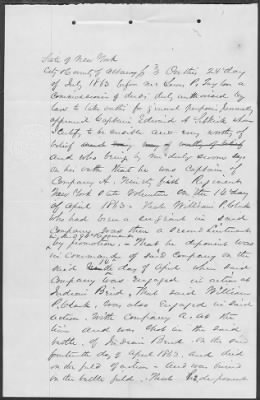 State of New York
City & County of Albany } SS On this 24th day
of July 1863 before me Lewis R. Taylor a
Commissioner of deeds duly authorized by
law to take oaths for general purposes, personally
appeared Captain Edward A. who
I certify, to be credible and very worthy of
belief
and who being by me duly sworn says
on his oath that he was Captain of
Company A. Ninety first Regiment
New York State Volunteers on the 14 day
of April 1863. That William P. Clark
who had been a sergeant in said
Company was then a Second Lieutenant
by promotion. That he deponent was
in command of said Company on the
said 14th day of April when said
Company was engaged in action at
Indian Bend, that said William
P. Clark, was also engaged in said
action with Company A. at the
time and was shot in the said
battle of Indian Bend on the said
fourteenth day of April 1863. and died
on the field of action and was buried
on the battle field. That he deponent